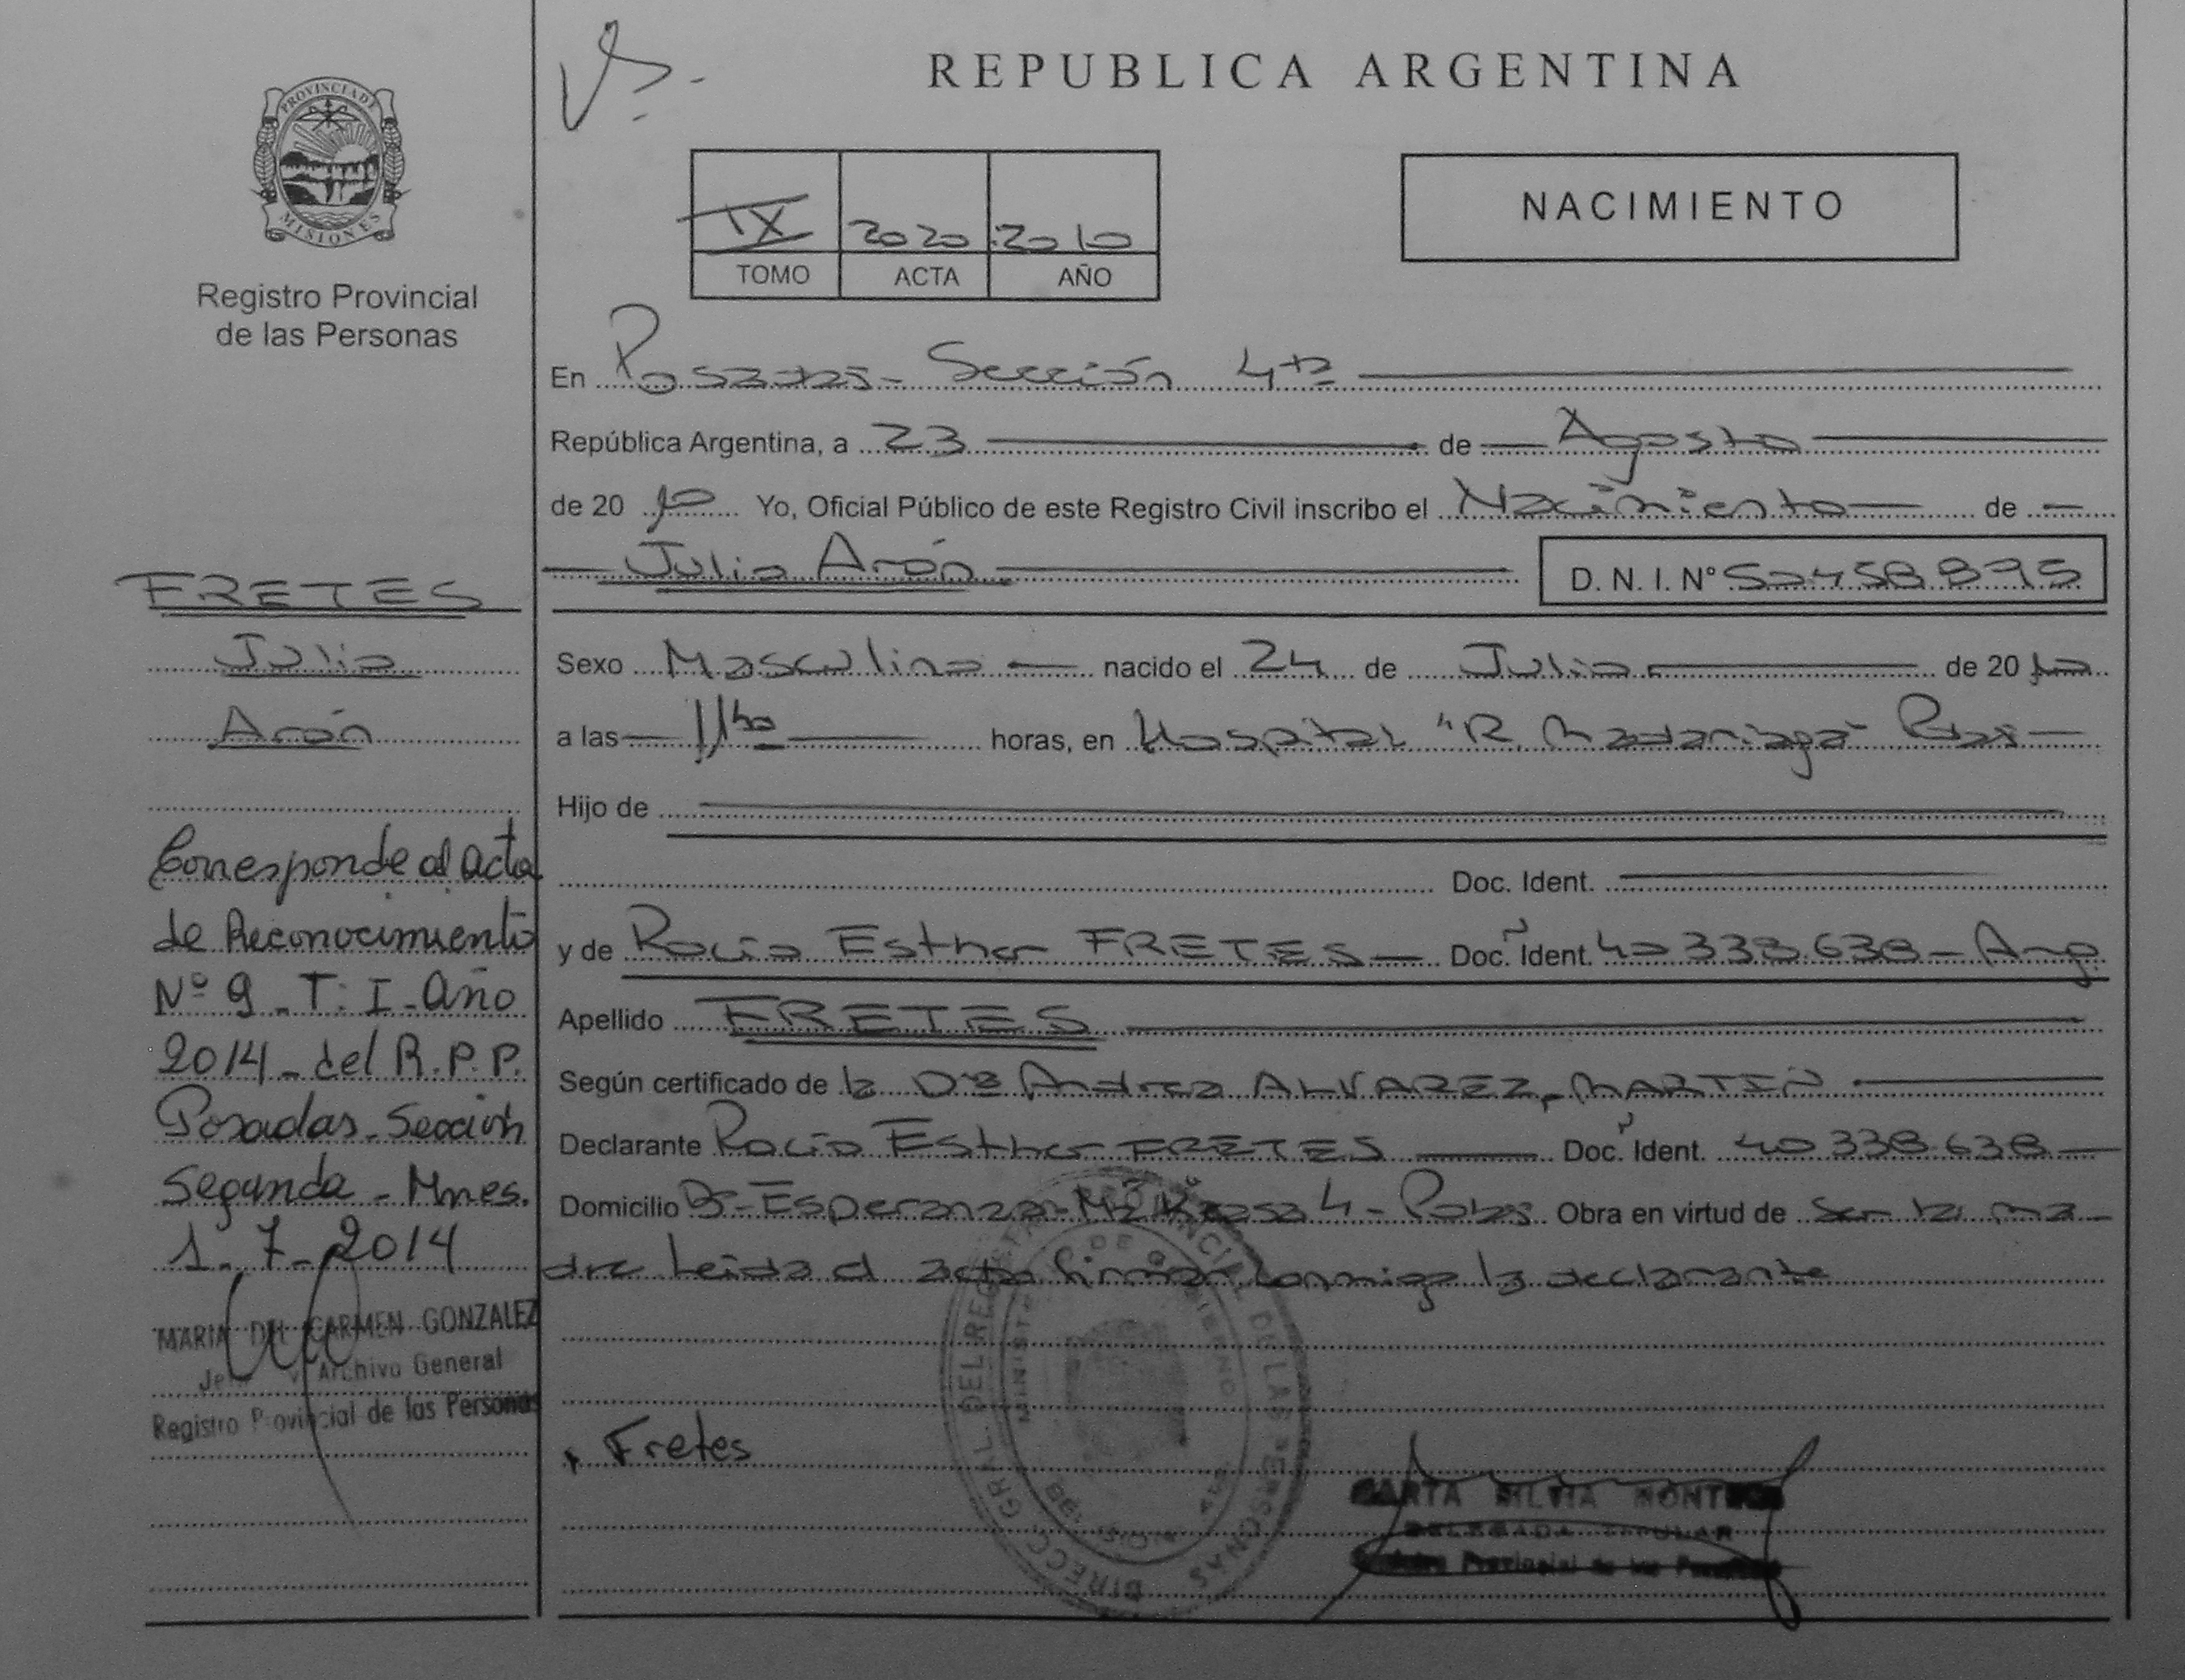 PROVINCIA DE
MISIONES
Registro Provincial
de las Personas
FRETES
Julio
Arón
Corresponde al acta
de Reconocimiento
Nº 9 - T. I - Año
2014 - del R.P.P.
Posadas - Sección
Segunda - Mnes.
1 - 7 - 2014
MARIA DEL CARMEN GONZALEZ
Archivo General
Registro Provincial de las Personas
REPUBLICA ARGENTINA
IX 2020 2010
TOMO ACTA AÑO
NACIMIENTO
En Posadas - Sección 4ta
República Argentina, a 23 de Agosto
de 20 10 Yo, Oficial Público de este Registro Civil inscribo el Nacimiento de
Julio Arón D. N. I. Nº
Sexo Masculino nacido el 24 de Julio de 20 10
a las horas, en Hospital "R. Madariaga" Pdas
Hijo de
Doc. Ident.
y de Rocío Esther FRETES Doc. Ident. 40 338.638 - Arg
Apellido FRETES
Según certificado de la Dra Andrea ALVAREZ, MARTIN
Declarante Rocío Esther FRETES Doc. Ident. 40 338.638
Domicilio Bº Esperanza - Casa 4 - Pdas Obra en virtud de ser la ma-
dre Leida el acta firma conmigo la declarante
Fretes
DIRECC. GRAL. DEL REGISTRO PROVINCIAL DE LAS PERSONAS
MINISTERIO DE GOBIERNO
MARTA SILVIA
DELEGADA TITULAR
Registro Provincial de las Personas